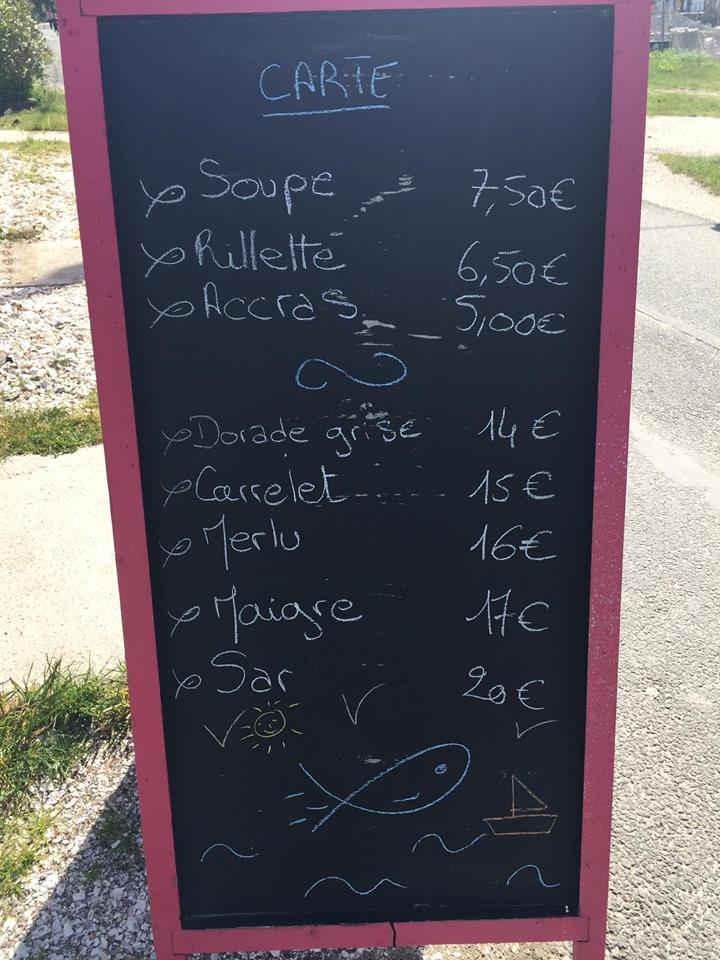 CARTE
Soupe 7,50€
Rillette 6,50€
Accras 5,00€
Dorade grise 14€
Carrelet 15€
Merlu 16€
Maigre 17€
Sar 20€